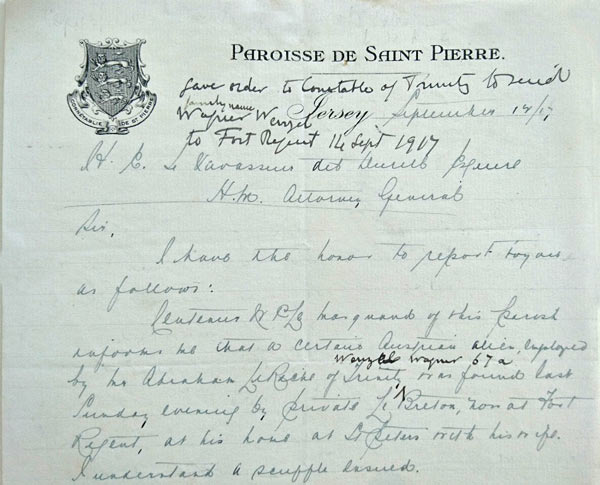 PAROISSE DE SAINT PIERRE.
CONNÉTABLIE DE ST PIERRE
gave order to Constable of Trinity to send
family name
Wagner Wenzel
Jersey September 14/17
to Fort Regent 14 Sept 1917
H. E. Le Vavasseur dit Durell Esquire
H.M. Attorney General
Sir,
I have the honor to report to you
as follows:
Centenier Le Marquand of this Parish
informs me that a certain Austrian alien, employed
Wenzel Wagner 67a
by Mr Abraham LeRiche of Trinity was found last
Sunday evening by private Le Breton, now at Fort
Regent, at his home at St Peters with his wife.
I understand a scuffle ensued.